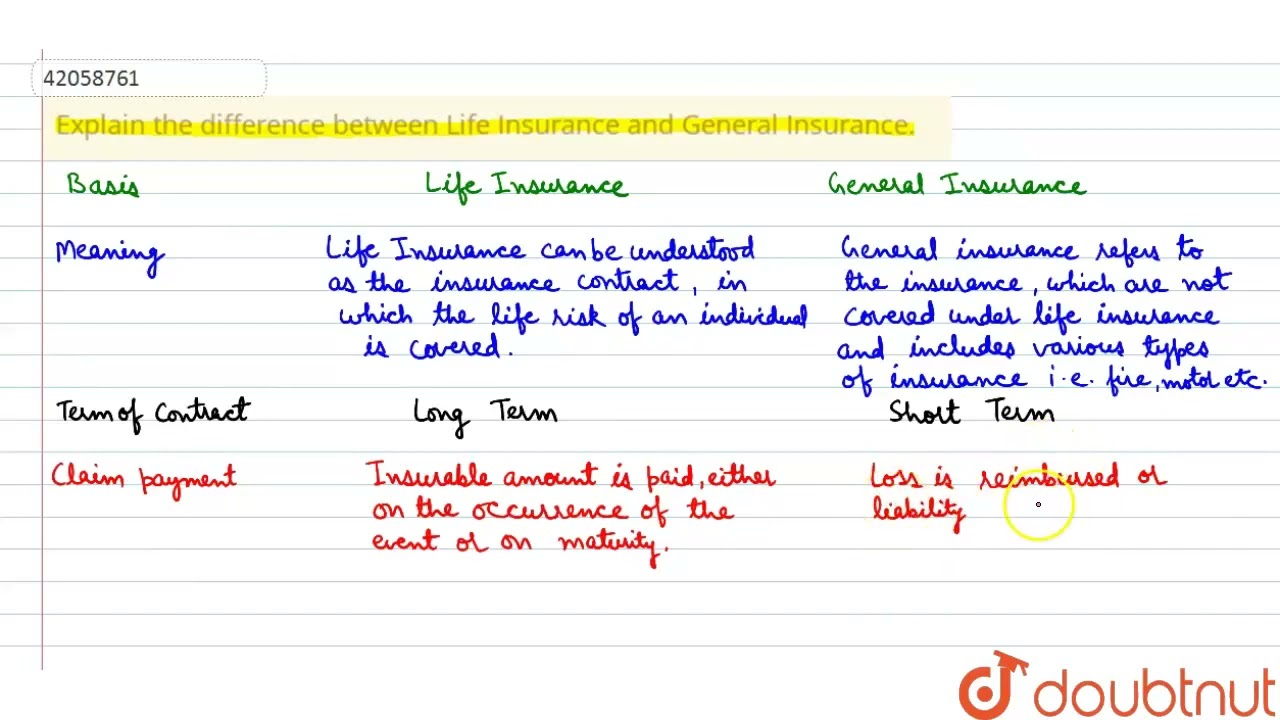 42058761
Explain the difference between Life Insurance and General Insurance.
Basis Life Insurance General Insurance
Meaning
Life Insurance can be understood
as the insurance contract, in
which the life risk of an individual
is covered.
General insurance refers to
the insurance, which are not
covered under life insurance
and includes various types
of insurance i.e. fire, motor etc.
Term of Contract Long Term Short Term
Claim payment
Insurable amount is paid, either
on the occurrence of the
event or on maturity.
Loss is reimbursed or
liability
doubtnut